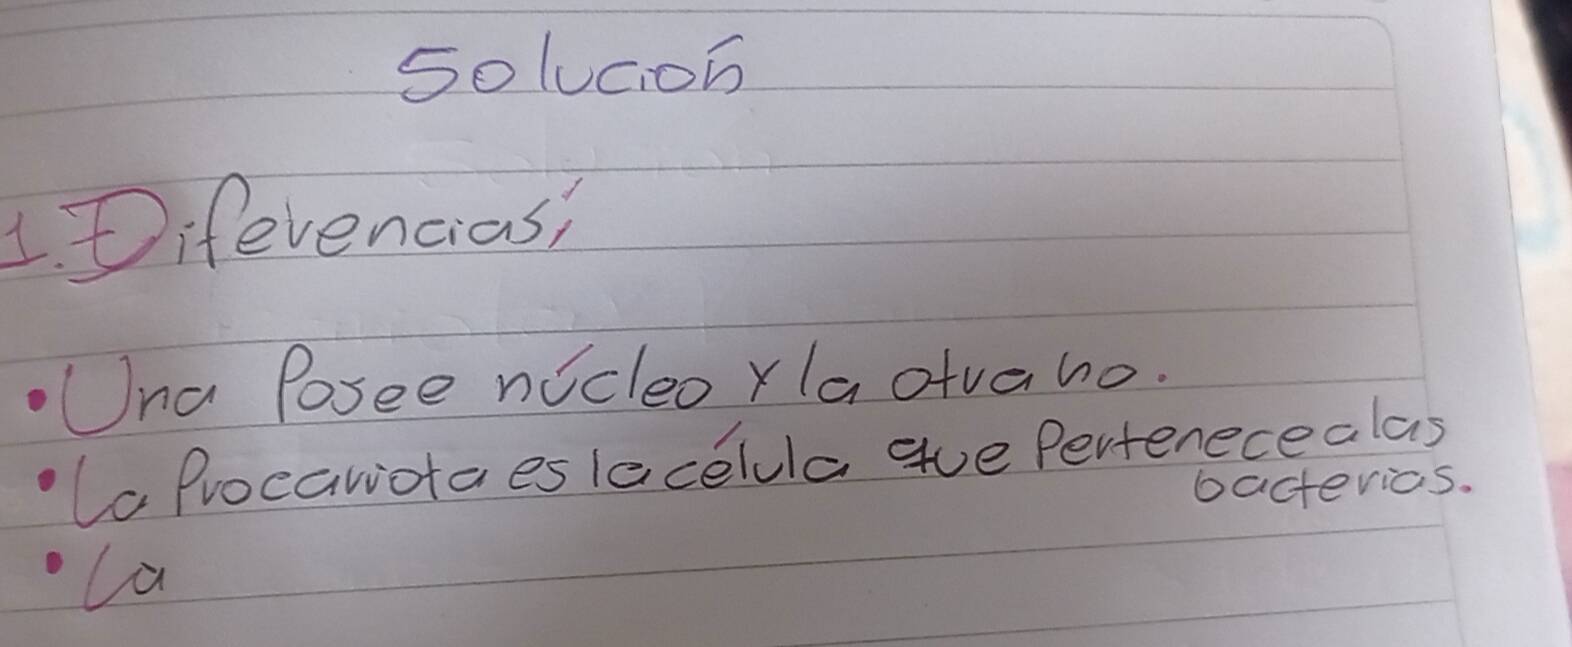 Solución
1. Diferencias;
• Una Posee núcleo y la otra no.
• La Procariota es la célula que Pertenece a las
bacterias.
• La